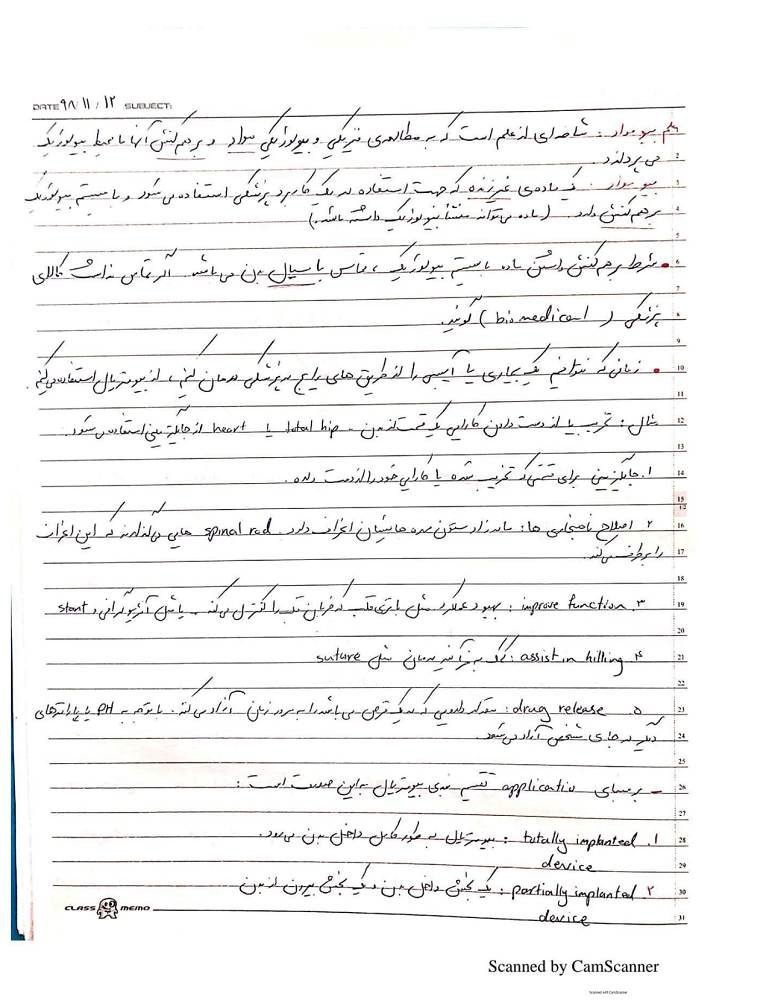 DATE ۹۸/۱۱/۱۲ SUBJECT:
علم بیو مواد : شاخه ای از علم است که به مطالعه ی فیزیکی و بیولوژیکی مواد و برهم کنش آنها با محیط بیولوژیک
می پردازد.
بیو مواد : یک ماده ی غیر زنده که جهت استفاده در یک کاربرد پزشکی استفاده می شود و با سیستم بیولوژیک
برهم کنش دارد. (ماده می تواند منشأ بیولوژیک داشته باشد.)
• شرط برهم کنش داشتن ماده با سیستم بیولوژیک ، تماس با سیال بدن می باشد. اگر تماس نداشت کالای
پزشکی (biomedical) گویند.
• زمانی که نتوانیم یک بیماری یا آسیبی را از طریق های رایج در پزشکی درمان کنیم ، از بیومتریال استفاده می کنیم.
مثال : تخریب یا از دست دادن کارایی یک قسمت از بدن - total hip یا heart از جایگزینی استفاده می شود.
۱. جایگزینی برای قسمتی که تخریب شده یا کارایی خود را از دست داده.
۲ اصلاح ناهنجاری ها : مانند ستون مهره هاشیان انحراف دارد. spinal rod هایی می گذارند که این انحراف
را برطرف می کند.
۳. improve function : بهبود عملکرد مثل باتری قلب که ضربان قلب را کنترل می کند - یا مثل آنژیوگرافی و stant
۴ assist in hilling : کمک به فرآیند درمان مثل suture
۵ drug release : مقدار دارویی که در یک قرص می باشد را به مرور زمان آزاد می کند. با توجه به PH یا پارامترهای
دیگر در جای مشخص آزاد می شود.
- بر مبنای application تقسیم بندی بیومتریال به این صورت است :
۱. tutally implanted : بیومتریال به طور کامل داخل بدن می رود.
device
۲. partially implanted : یک بخش داخل بدن و یک بخش بیرون از بدن
device
CLASS MEMO
Scanned by CamScanner
Scanned with CamScanner